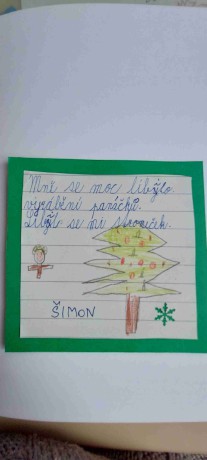 Mně se moc líbylo
vyrábění panáčků.
Líbyl se mi stromeček.
ŠIMON